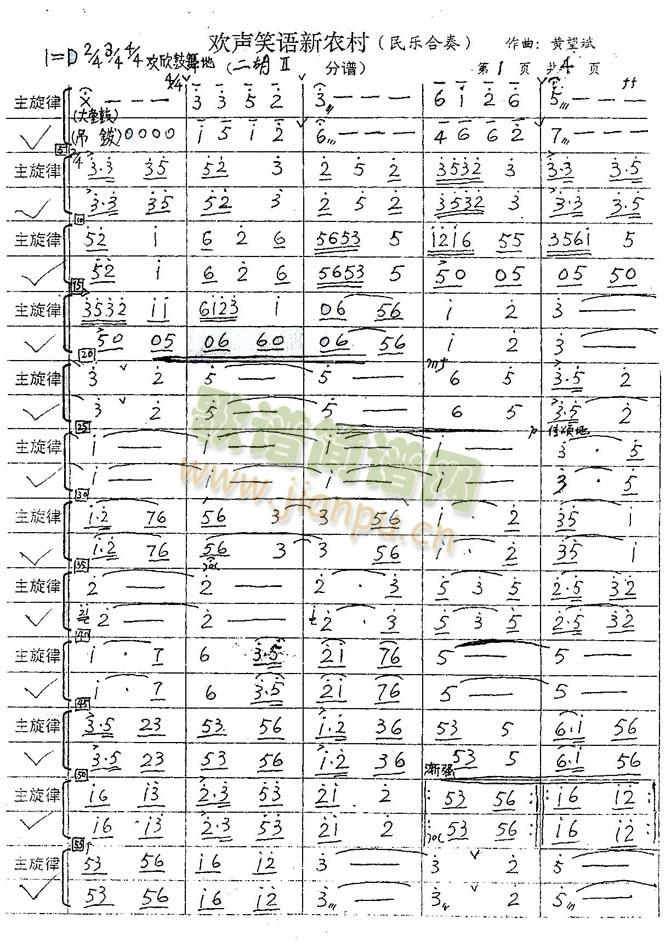 欢声笑语新农村（民乐合奏） 作曲：黄望斌
1=D 2/4 3/4 4/4 欢欣鼓舞地 （二胡Ⅱ 分谱） 第1页 共4页
4/4 ff
主旋律 X — — — 3 3 5 2 3 — — — 6 1 2 6 5 — — —
(大堂鼓)
(吊钹) 0 0 0 0 1 5 1 2 6 — — — 4 6 6 2 7 — — —
5 2/4
主旋律 3·3 35 52 3 2 5 2 3532 3 3·3 3·5
3·3 35 52 3 2 5 2 3532 3 3·3 3·5
10
主旋律 52 1 6 2 6 5653 5 1216 55 3561 5
52 1 6 2 6 5653 5 50 05 05 50
15
主旋律 3532 11 6123 1 06 56 1 2 3 —
50 05 06 60 06 56 1 2 3 —
20 mf
主旋律 3 2 5 — 5 — 6 5 3·5 2
3 2 5 — 5 — 6 5 3·5 2
25 p
主旋律 1 — 1 — 1 — 1 — 3 · 5
1 — 1 — 1 — 1 — 3 · 5
30
主旋律 1·2 76 56 3 3 56 1 · 2 35 1
1·2 76 56 3 3 56 1 · 2 35 1
35
主旋律 2 — 2 — 2 · 3 5 3 5 2·5 32
2 — 2 — 2 · 3 5 3 5 2·5 32
40
主旋律 1 · 7 6 3·5 21 76 5 — 5 —
1 · 7 6 3·5 21 76 5 — 5 —
45
主旋律 3·5 23 53 56 1·2 36 53 5 6·1 56
3·5 23 53 56 1·2 36 53 5 6·1 56
50 渐强
主旋律 16 13 2·3 53 21 2 : 53 56 : : 16 12 :
16 13 2·3 53 21 2 : 53 56 : : 16 12 :
55
主旋律 53 56 16 12 3 — 3 2 5 —
53 56 16 12 3 — 3 2 5 —
歌谱简谱网
www.jianpu.cn